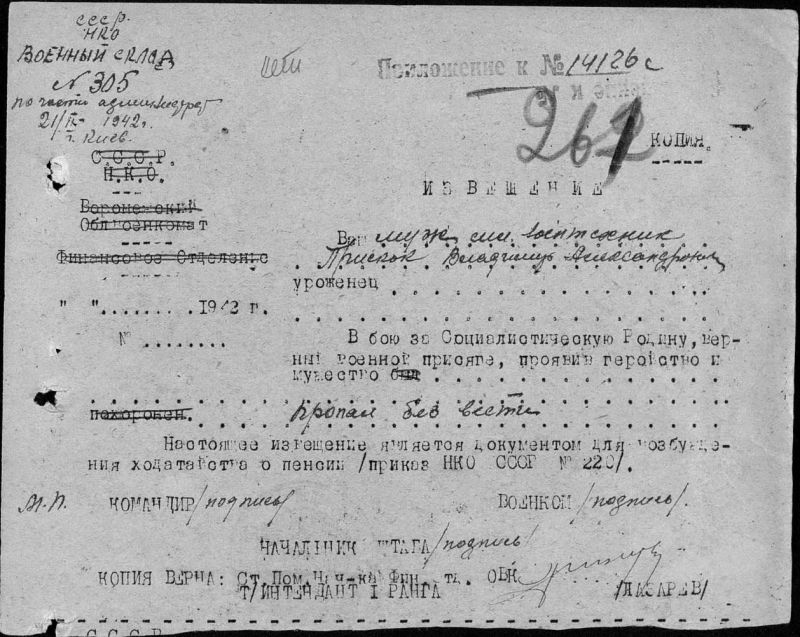 СССР.
НКО
ВОЕННЫЙ СКЛАД
№ 305
по части
21/ 1942г.
г. Киев.
Приложение к № 14126 с
КОПИЯ.
С.С.С.Р.
Н.К.О.
ИЗВЕЩЕНИЕ
Воронежский
Облвоенкомат
Финансовое Отделение
Ваш муж
Владимир Александрович
уроженец
" " 1942 г.
№
В бою за Социалистическую Родину, вер-
ный военной присяге, проявив геройство и
мужество был
похоронен. пропал без вести
Настоящее извещение является документом для возбужде-
ния ходатайства о пенсии /приказ НКО СССР № 220/.
М.П. КОМАНДИР /подпись/ ВОЕНКОМ /подпись/.
НАЧАЛЬНИК ШТАБА /подпись/
КОПИЯ ВЕРНА: Ст. Пом. Нач-ка Фин. тд. ОВК
Т/ИНТЕНДАНТ I РАНГА /ЛАЗАРЕВ/
С.С.С.Р.